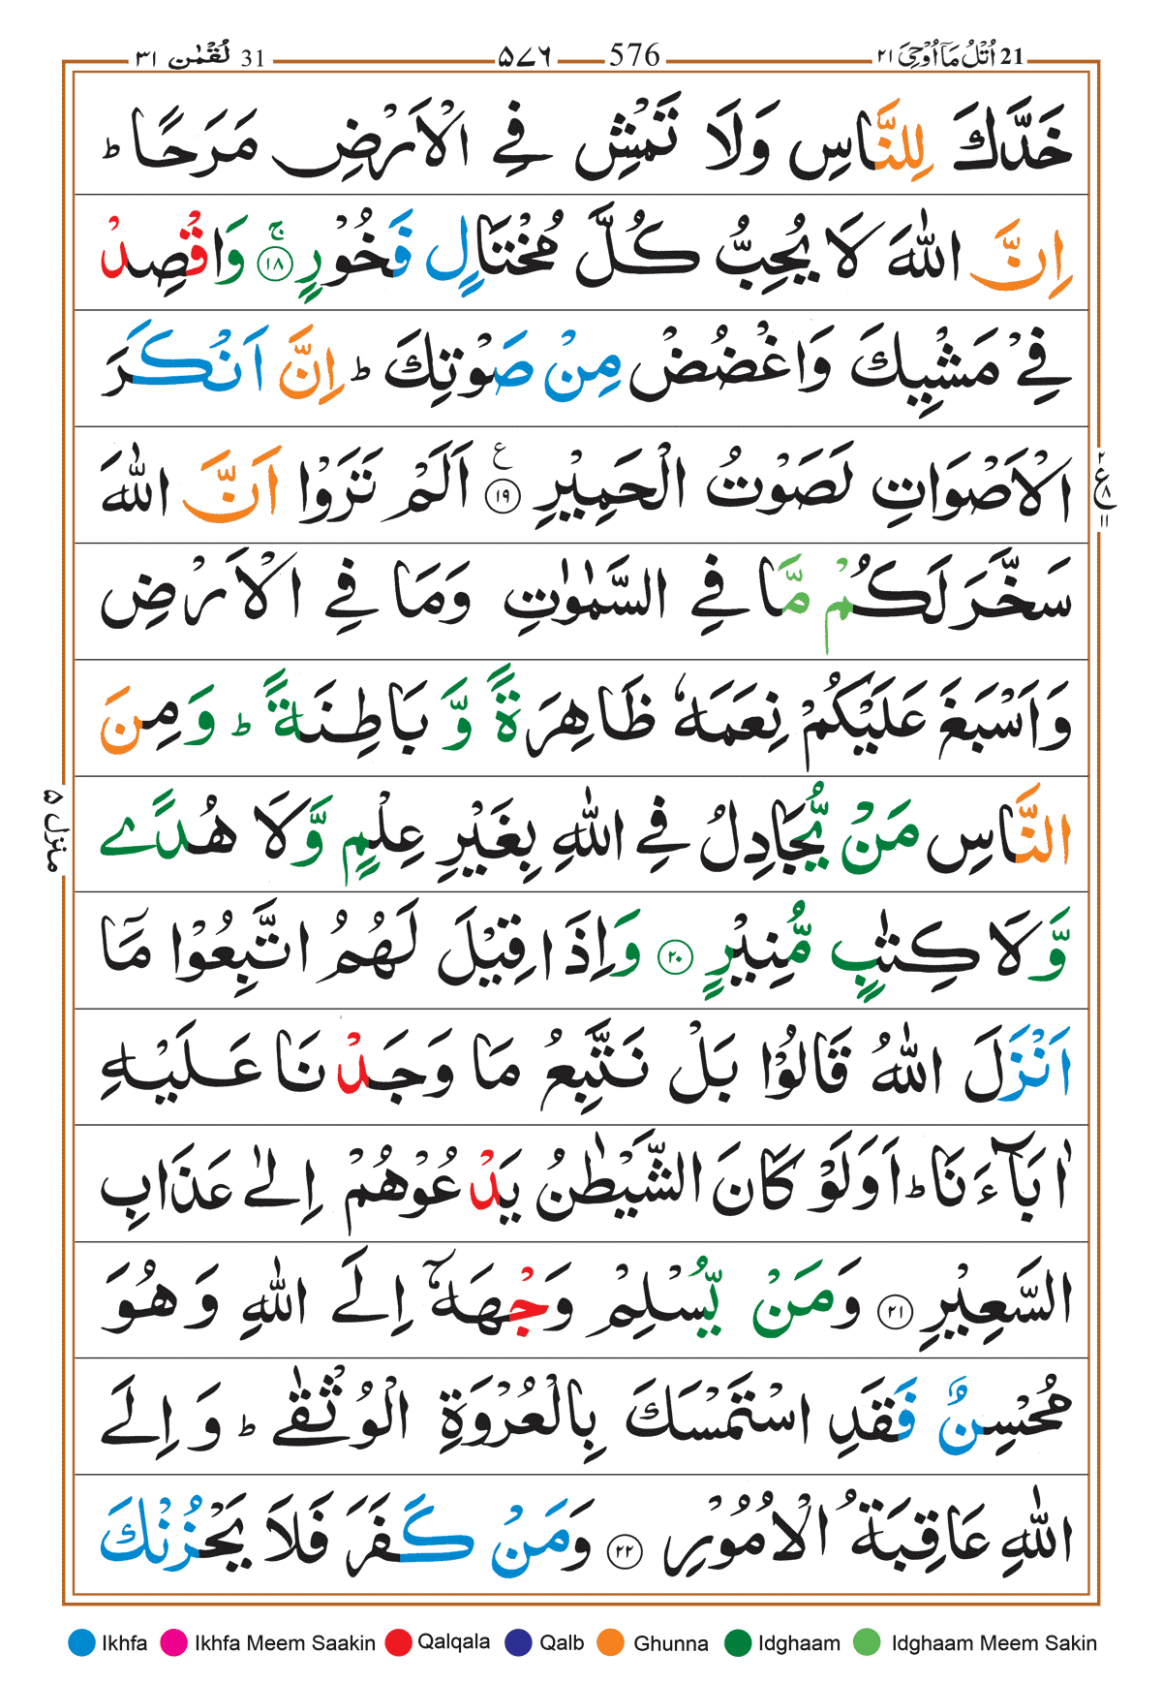 21 اُتۡلُ مَاۤ اُوۡحِیَ ٢١ 576 ٥٧٦ 31 لُقۡمٰن ٣١
خَدَّكَ لِلنَّاسِ وَلَا تَمۡشِ فِی الۡاَرۡضِ مَرَحًا ؕ
اِنَّ اللّٰهَ لَا یُحِبُّ كُلَّ مُخۡتَالٍ فَخُوۡرٍ ۚ ١٨ وَاقۡصِدۡ
فِیۡ مَشۡیِكَ وَاغۡضُضۡ مِنۡ صَوۡتِكَ ؕ اِنَّ اَنۡكَرَ
الۡاَصۡوَاتِ لَصَوۡتُ الۡحَمِیۡرِ ١٩ ع اَلَمۡ تَرَوۡا اَنَّ اللّٰهَ
٢ ع ٨ ١١
سَخَّرَ لَكُمۡ مَّا فِی السَّمٰوٰتِ وَمَا فِی الۡاَرۡضِ
وَاَسۡبَغَ عَلَیۡكُمۡ نِعَمَهٗ ظَاهِرَةً وَّ بَاطِنَةً ؕ وَمِنَ
النَّاسِ مَنۡ یُّجَادِلُ فِی اللّٰهِ بِغَیۡرِ عِلۡمٍ وَّلَا هُدًی
منزل ٥
وَّلَا كِتٰبٍ مُّنِیۡرٍ ٢٠ وَاِذَا قِیۡلَ لَهُمُ اتَّبِعُوۡا مَاۤ
اَنۡزَلَ اللّٰهُ قَالُوۡا بَلۡ نَتَّبِعُ مَا وَجَدۡنَا عَلَیۡهِ
اٰبَآءَنَا ؕ اَوَلَوۡ كَانَ الشَّیۡطٰنُ یَدۡعُوۡهُمۡ اِلٰی عَذَابِ
السَّعِیۡرِ ٢١ وَمَنۡ یُّسۡلِمۡ وَجۡهَهٗۤ اِلَی اللّٰهِ وَهُوَ
مُحۡسِنٌ فَقَدِ اسۡتَمۡسَكَ بِالۡعُرۡوَةِ الۡوُثۡقٰی ؕ وَ اِلَی
اللّٰهِ عَاقِبَةُ الۡاُمُوۡرِ ٢٢ وَمَنۡ كَفَرَ فَلَا یَحۡزُنۡكَ
Ikhfa Ikhfa Meem Saakin Qalqala Qalb Ghunna Idghaam Idghaam Meem Sakin